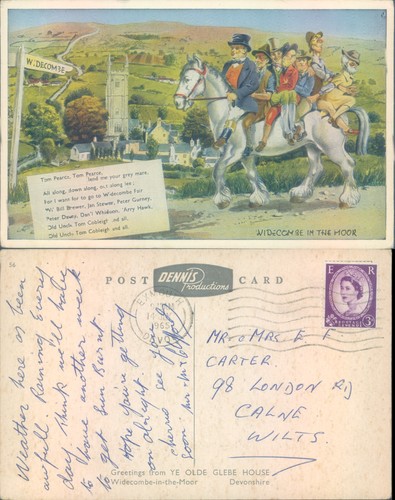 WIDECOMBE
Tom Pearce, Tom Pearce,
lend me your grey mare,
All along, down along, out along lee;
For I want for to go to Widecombe Fair
Wi' Bill Brewer, Jan Stewer, Peter Gurney,
Peter Davey, Dan'l Whiddon, 'Arry Hawk,
Old Uncle Tom Cobleigh and all,
Old Uncle Tom Cobleigh and all.
WIDECOMBE IN THE MOOR
56
POST CARD
DENNIS
Productions
Weather here as been
awfull. Raining Every
day think we'll have
to have another week
to get Sun Burnt.
Hope you're getting
on alright.
cheerio see you
soon Mr & Mrs
1965
DEVON
E R
POSTAGE
REVENUE
3D
MR & MRS E F
CARTER.
98 LONDON RD
CALNE
WILTS.
Greetings from YE OLDE GLEBE HOUSE
Widecombe-in-the-Moor Devonshire